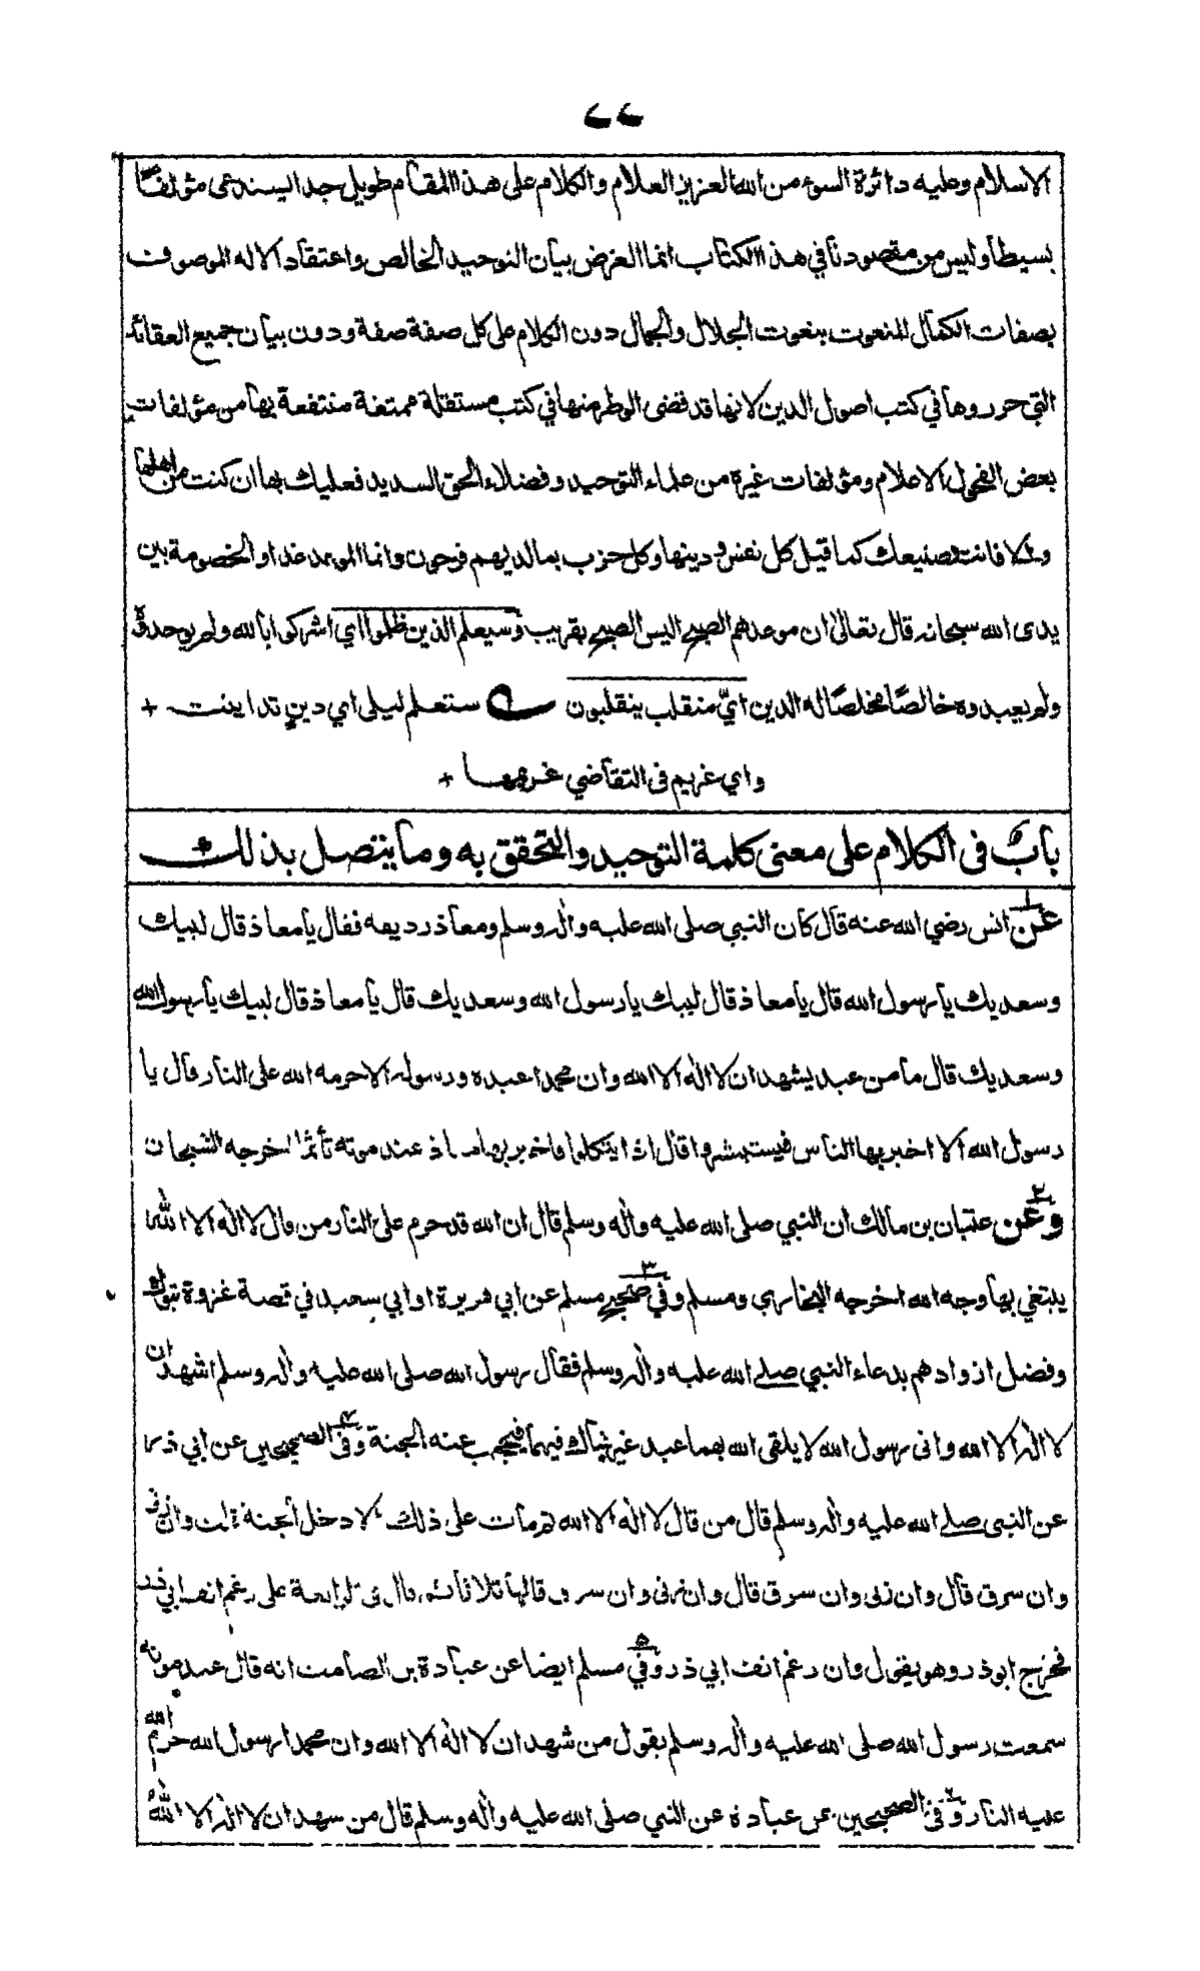 ٢٢
الاسلام وعليه دائرة السوء من الله العزيز العلام والكلام على هذا المقام طويل جدا ليستدعى مؤلفا
بسيطا وليس من مقصودنا في هذا الكتاب انما الغرض بيان التوحيد الخالص واعتقاد الاله الموصوف
بصفات الكمال المنعوت بنعوت الجلال والجمال دون الكلام على كل صفة صفة ودون بيان جميع العقائد
التي حرروها في كتب اصول الدين لانها قد قضى الوطر منها في كتب مستقلة ممتعة منتفعة بها من مؤلفات
بعض الفحول الاعلام ومؤلفات غيره من علماء التوحيد وفضلاء الحق السديد فعليك بها ان كنت من اهلها
والا فانت وصنيعك كما قيل كل نفس ودينها وكل حزب بما لديهم فرحون وانما الموعد غدا والخصومة بين
يدى الله سبحانه قال تعالى ان موعدهم الصبح اليس الصبح بقريب وسيعلم الذين ظلموا اي اشركوا بالله ولم يوحدوه
ولم يعبدوه خالصًا مخلصًا له الدين ايّ منقلب ينقلبون ستعلم ليلى اي دينٍ تداينت +
واي غريم في التقاضي غريمها +
باب في الكلام على معنى كلمة التوحيد والتحقق به وما يتصل بذلك
عن انس رضي الله عنه قال كان النبي صلى الله عليه واله وسلم ومعاذ رديفه فقال يا معاذ قال لبيك
وسعديك يا رسول الله قال يا معاذ قال لبيك يا رسول الله وسعديك قال يا معاذ قال لبيك يا رسول الله
وسعديك قال ما من عبد يشهد ان لا اله الا الله وان محمدا عبده ورسوله الا حرمه الله على النار قال يا
رسول الله الا اخبر بها الناس فيستبشروا قال اذا يتكلوا فاخبر بها معاذ عند موته تأثما اخرجه الشيخان
وعن ٢ عتبان بن مالك ان النبي صلى الله عليه واله وسلم قال ان الله قد حرم على النار من قال لا اله الا الله
يبتغي بها وجه الله اخرجه البخاري ومسلم وفي ٣ صحيح مسلم عن ابي هريرة او ابي سعيد في قصة غزوة تبوك
وفضل ازوادهم بدعاء النبي صلى الله عليه واله وسلم فقال رسول الله صلى الله عليه واله وسلم اشهد ان
لا اله الا الله واني رسول الله لا يلقى الله بهما عبد غير شاك فيهما فيحجب عنه الجنة وفي ٤ الصحيحين عن ابي ذر
عن النبي صلى الله عليه واله وسلم قال من قال لا اله الا الله ثم مات على ذلك الا دخل الجنة قلت وان زنى
وان سرق قال وان زنى وان سرق قال وان زنى وان سرق قالها ثلاثا ثم قال في الرابعة على رغم انف ابي ذر
فخرج ابو ذر وهو يقول وان رغم انف ابي ذر وفي ٥ مسلم ايضا عن عبادة بن الصامت انه قال عند موته
سمعت رسول الله صلى الله عليه واله وسلم يقول من شهد ان لا اله الا الله وان محمدا رسول الله حرم الله
عليه النار وفي الصحيحين عن عبادة عن النبي صلى الله عليه واله وسلم قال من شهد ان لا اله الا الله